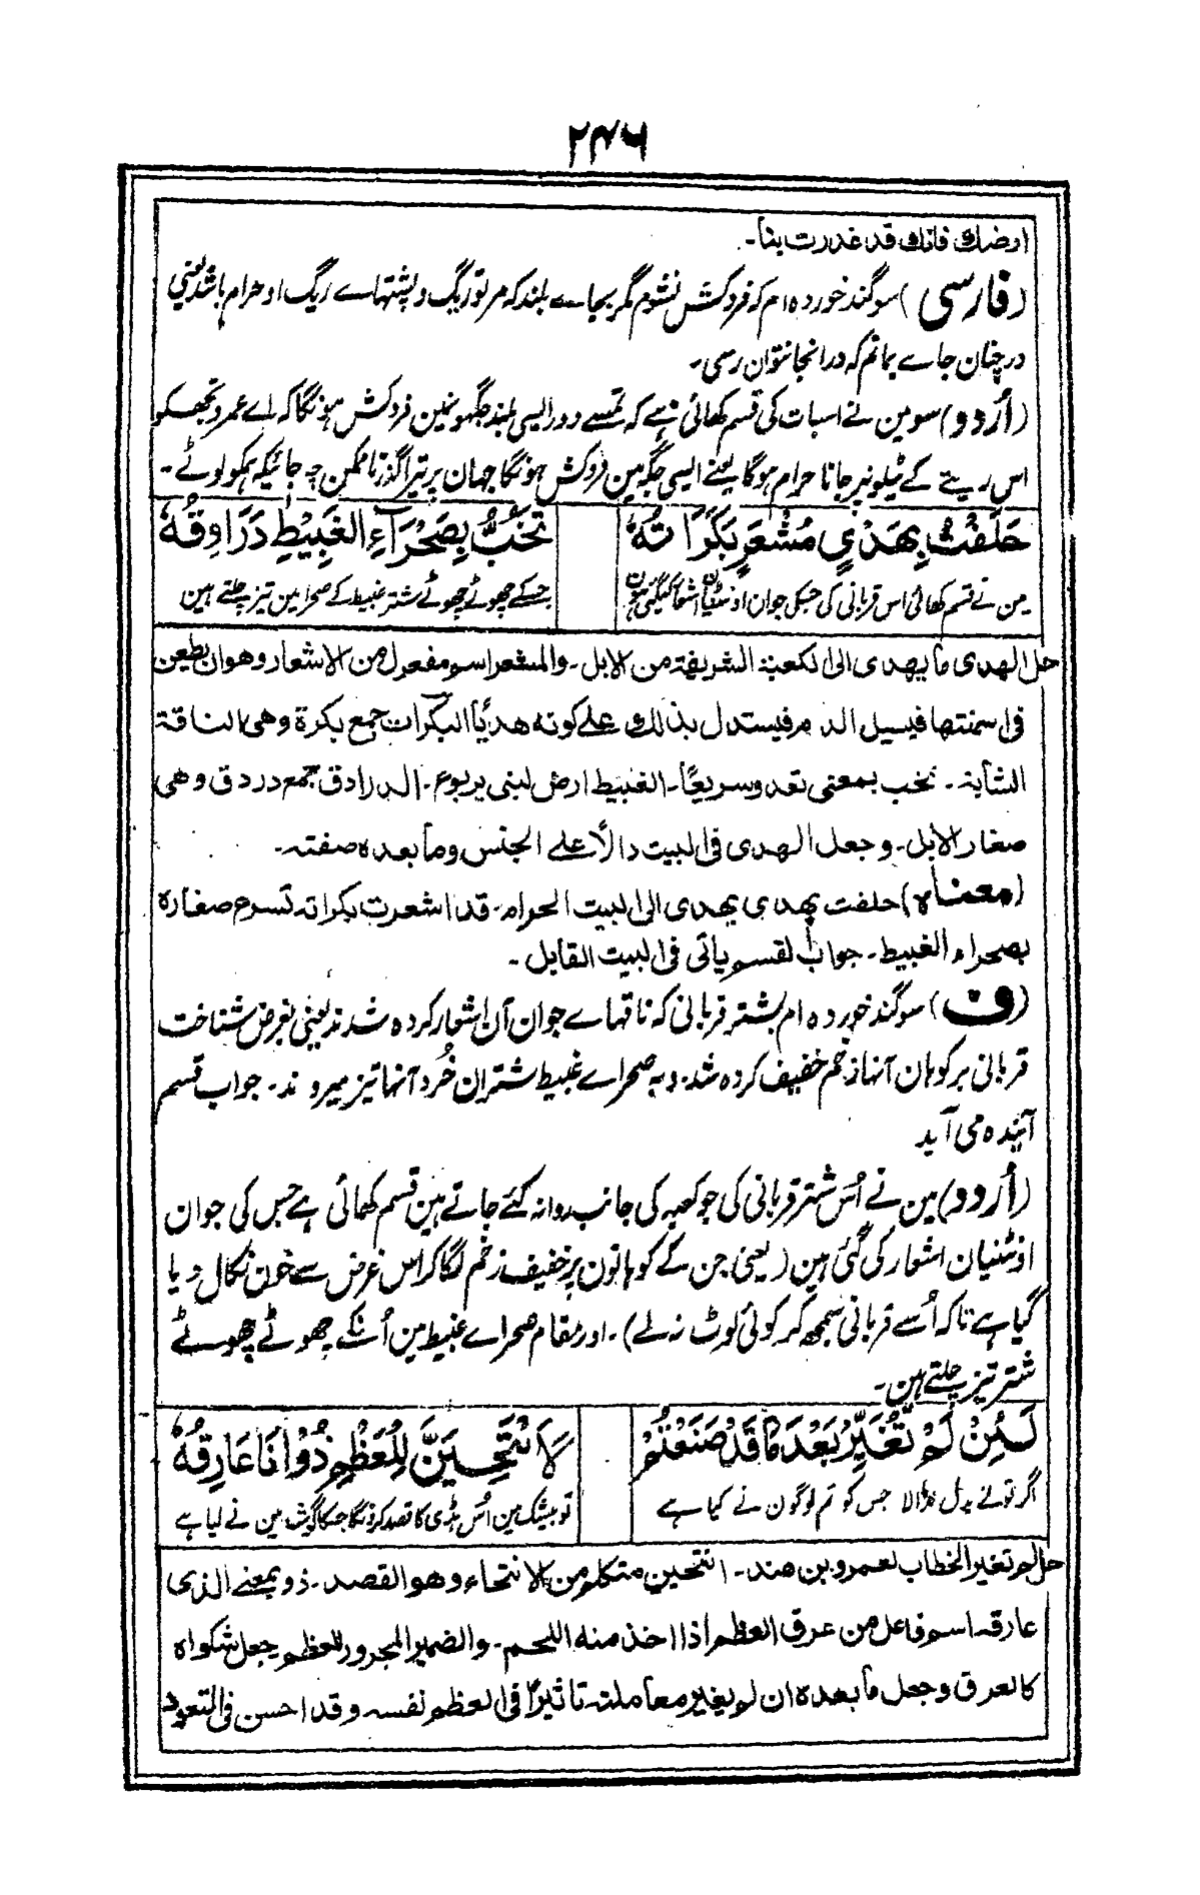 ۲۴۶
ارضك فانك قد غدرت بنا۔
(فارسی) سوگند خورده ام که فروکش نشوم مگر بجاے بلند که مر تو ریگ و پشتهاے ریگ او حرام باشد یعنی
در چنان جاے بمانم که در آنجا نتوان رسی۔
(اُردو) سو مین نے اسبات کی قسم کھائی ہے کہ تمسے دور ایسی بلند جگہونمین فروکش ہونگا کہ اے عمرو تجھکو
اس ریتے کے ٹیلونپر جانا حرام ہوگا یعنے ایسی جگہ مین فروکش ہونگا جہان پر تیرا گذر ناممکن چہ جائیکہ ہمکو لوٹے۔
حَلَفْتُ بِهَدْيٍ مُشْعَرٍ بَكَرَاتُهُ تَخُبُّ بِصَحْرَآءِ الغَبِيْطِ دَرَادِقُهُ
مین نے قسم کھائی اس قربانی کی جسکی جوان اونٹنیان اشعار کیگئی ہین جسکے چھوٹے چھوٹے شتر غبیط کے صحرا مین تیز چلتے ہین
حل الهدى ما يهدى الى الكعبة الشريفة من الابل۔ والمشعر اسم مفعول من الاشعار وهو ان يطعن
فى اسنمتها فيسيل الدم فيستدل بذلك على كونه هديًا البكرات جمع بكرة وهى الناقة
الشابة۔ تخب بمعنى تعدو سريعًا۔ الغبيط ارض لبنى يربوع۔ الدرادق جمع دردق وهى
صغار الابل۔ وجعل الهدى فى البيت دالًا على الجنس وما بعده صفته۔
(معناه) حلفت بهدى يهدى الى البيت الحرام۔ قد اشعرت بكراته تسرع صغاره
بصحراء الغبيط۔ جواب القسم ياتى فى البيت القابل۔
(ف) سوگند خورده ام بشتر قربانی که ناقهاے جوان آن اشعار کرده شدند یعنی بغرض شناخت
قربانی بر کوهان آنها زخم خفیف کرده شد۔ و به صحراے غبیط شتران خُرد آنها تیز میروند۔ جواب قسم
آینده می آید
(اُردو) مین نے اُس شتر قربانی کی جو کعبہ کی جانب روانہ کئے جاتے ہین قسم کھائی ہے جس کی جوان
اونٹنیان اشعار کی گئی ہین (یعنی جن کے کوہانون پر خفیف زخم لگا کر اس غرض سے خون نکال دیا
گیا ہے تاکہ اُسے قربانی سمجھ کر کوئی لوٹ نہ لے)۔ اور مقام صحراے غبیط مین اُنکے چھوٹے چھوٹے
شتر تیز چلتے ہین۔
لَئِنْ لَمْ تُغَيِّرْ بَعْدَ مَا قَدْ صَنَعْتُمْ لَاَنْتَحِيَنْ لِلْعَظْمِ ذُوْ اَنَا عَارِقُهُ
اگر تونے بدل نڈالا جس کو تم لوگون نے کیا ہے تو بیشک مین اُس ہڈی کا قصد کرونگا جسکا گوشت مین نے لیا ہے
حل لم تغير الخطاب لعمرو بن هند۔ انتحين متكلم من الانتحاء وهو القصد۔ ذو بمعنے الذى
عارقه اسم فاعل من عرق العظم اذا اخذ منه اللحم۔ والضمير المجرور للعظم جعل شكواه
كالعرق وجعل ما بعده ان لم يغير معاملته تاثيرًا فى العظم نفسه وقد احسن فى التعود